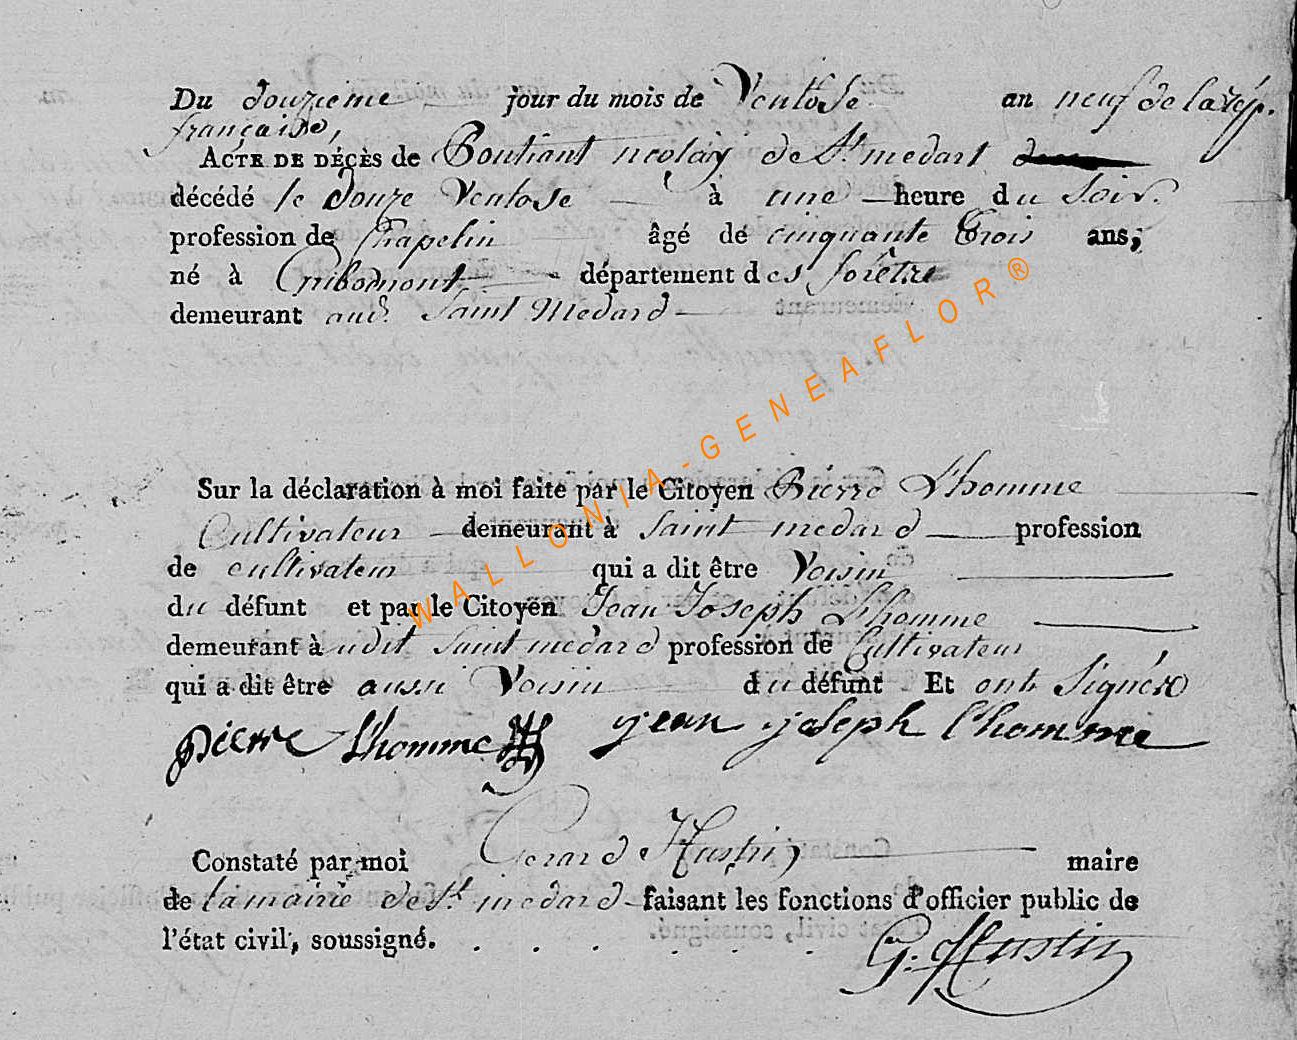 Du douzieme jour du mois de Ventose an neuf de la rép.
française,
ACTE DE DÉCÈS de Pontiant nicolay de St. medart
décédé le douze Ventose à une heure du Soir.
profession de Chapelin âgé de cinquante trois ans;
né à Gribomont département des forêtre
demeurant aud. Saint Medard
Sur la déclaration à moi faite par le Citoyen Pierre L'homme
Cultivateur demeurant à Saint medard profession
de cultivateur qui a dit être Voisin
du défunt et par le Citoyen Jean Joseph L'homme
demeurant à udit Saint medard profession de Cultivateur
qui a dit être aussi Voisin du défunt Et ont Signéx
pierre L'homme jean joseph L'homme
Constaté par moi Gerard Hustin maire
de la mairie de St. medard faisant les fonctions d'officier public de
l'état civil, soussigné.
G. Hustin
WALLONIA-GENEAFLOR®